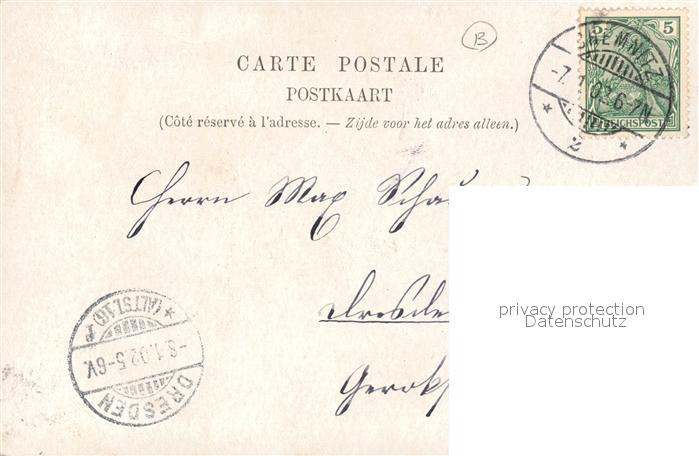 B
5 5
CHEMNITZ
-7.1.02.6-7N.
* 2 *
REICHSPOST
CARTE POSTALE
POSTKAART
(Côté réservé à l'adresse. — Zijde voor het adres alleen.)
Herrn Max
privacy protection
Datenschutz
* (ALTST.16) f
-8.1.02.5-6V.
DRESDEN